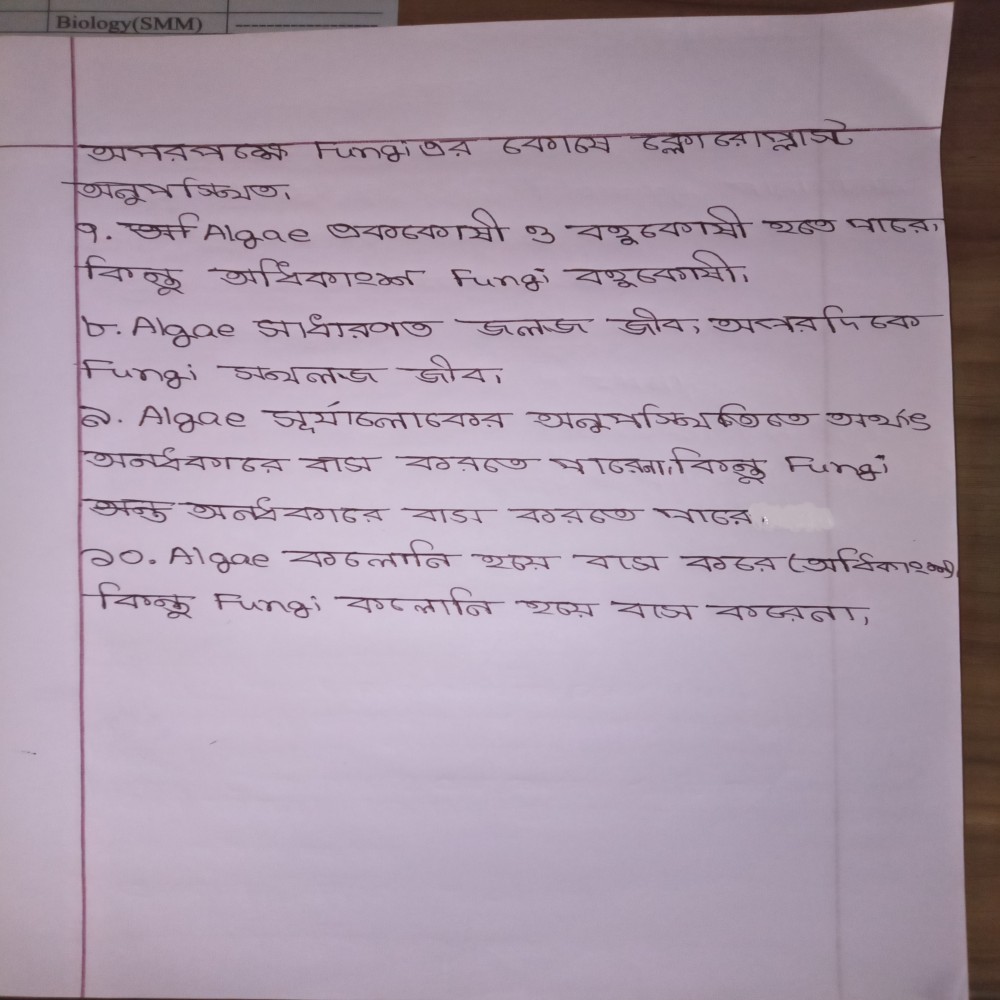 Biology(SMM)
অপরপক্ষে Fungi এর কোষে ক্লোরোপ্লাস্ট
অনুপস্থিত।
৭. Algae এককোষী ও বহুকোষী হতে পারে।
কিন্তু অধিকাংশ Fungi বহুকোষী।
৮. Algae সাধারণত জলজ জীব, অপরদিকে
Fungi সথলজ জীব।
৯. Algae সূর্যালোকের অনুপস্থিতিতে অর্থাৎ
অনধকারে বাস করতে পারেনা, কিন্তু Fungi
অনধকারে বাস করতে পারে।
১০. Algae কলোনি হয়ে বাস করে (অধিকাংশ)
কিন্তু Fungi কলোনি হয়ে বাস করেনা।